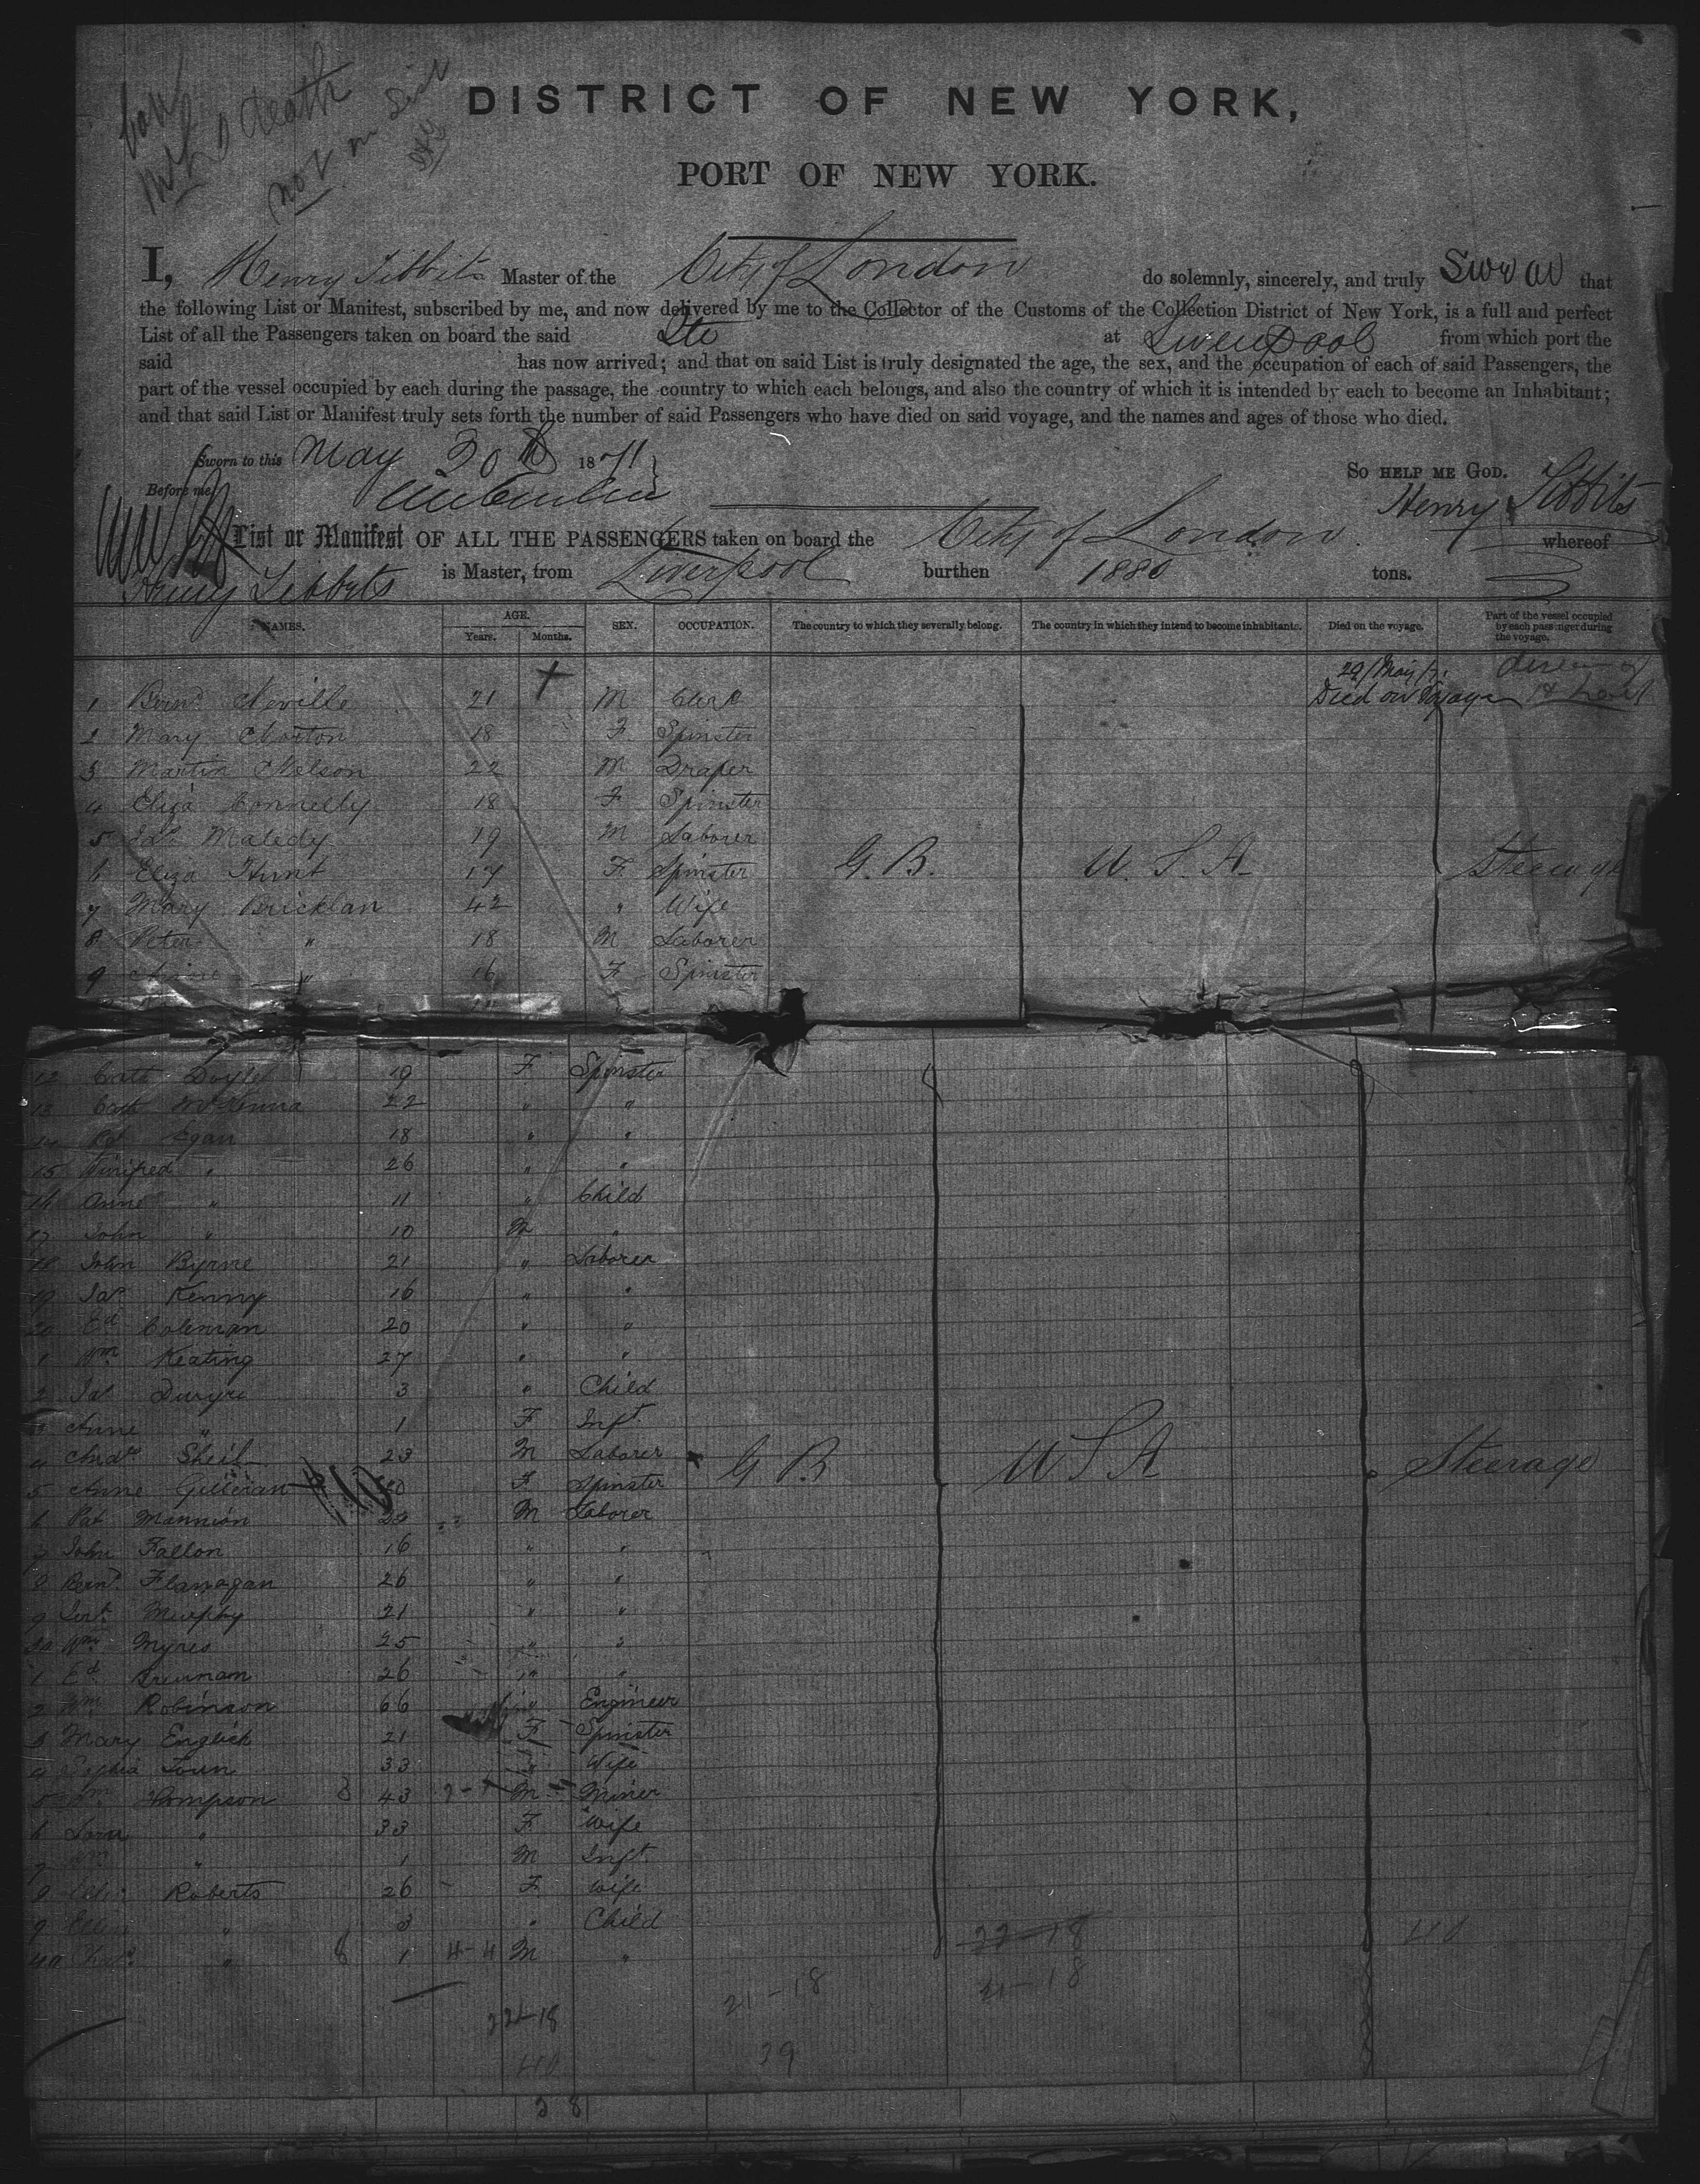 death
not on
DISTRICT OF NEW YORK,
PORT OF NEW YORK.
I, Henry Tibbits Master of the City of London do solemnly, sincerely, and truly Swear that
the following List or Manifest, subscribed by me, and now delivered by me to the Collector of the Customs of the Collection District of New York, is a full and perfect
List of all the Passengers taken on board the said Sts at Liverpool from which port the
said has now arrived; and that on said List is truly designated the age, the sex, and the occupation of each of said Passengers, the
part of the vessel occupied by each during the passage, the country to which each belongs, and also the country of which it is intended by each to become an Inhabitant;
and that said List or Manifest truly sets forth the number of said Passengers who have died on said voyage, and the names and ages of those who died.
Sworn to this May 30th 1871 So HELP ME GOD.
Before me, Henry Tibbits
List or Manifest OF ALL THE PASSENGERS taken on board the City of London whereof
Henry Tibbits is Master, from Liverpool burthen 1880 tons.
NAMES. AGE. Years. Months. SEX. OCCUPATION. The country to which they severally belong. The country in which they intend to become inhabitants. Died on the voyage. Part of the vessel occupied by each passenger during the voyage.
29/May/71
1 Bernd. Neville 21 M Clerk Died on Voyage
2 Mary 18 F Spinster
3 Martin Nelson 22 M Draper
4 Eliza Connelly 18 F Spinster
5 Jas Maledy 19 M Laborer
6 Eliza Hunt 17 F Spinster G. B. U. S. A. Steerage
7 Mary Bricklan 42 " Wife
8 Peter " 18 M Laborer
9 Anne " 16 F Spinster
12 Cath Doyle 19 F Spinster
13 Cath McKenna 22 " "
14 Egan 18 " "
15 Winifred " 26 " "
16 Anne " 11 " Child
17 John " 10 M "
18 John Byrne 21 " Laborer
19 Jas Kenny 16 " "
20 Ed Coleman 20 " "
1 Wm Keating 27 " "
2 Jas 3 " Child
3 Anne " 1 F Inft.
4 Andw Sheil 23 M Laborer G B U S A Steerage
5 Anne Gilleran 20 F Spinster
6 Pat Mannion 22 M Laborer
7 John Fallon 16 " "
8 Bernd. Flanagan 26 " "
9 Murphy 21 " "
30 Wm Myres 25 " "
1 Ed Brennan 26 " "
2 Wm Robinson 66 " Engineer
3 Mary English 21 F Spinster
4 Sophia 33 " Wife
5 Wm Thompson 43 M Miner
6 Sara " 33 F Wife
7 Wm " 1 M Inft.
8 Roberts 26 F Wife
9 " 3 " Child
40 " 1 4-4 M "
22-18 40
22-18 21-18 21-18
40 39
38